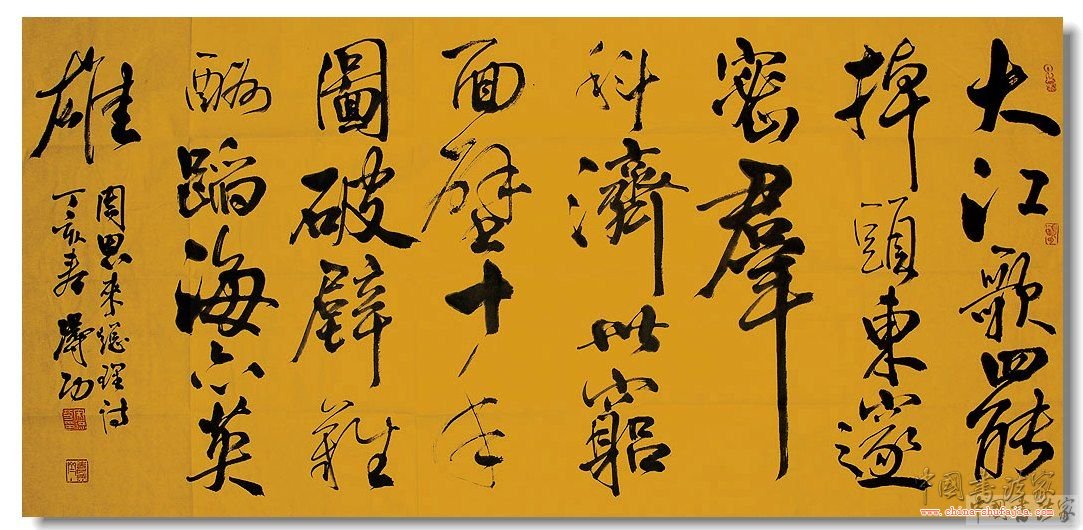 大江歌罷
掉頭東邃
密羣
科濟世竆
面壁十年
圖破壁難
酬蹈海亦英
雄
周恩來總理詩
丁亥春
中國書法家
www.china-shufajia.com